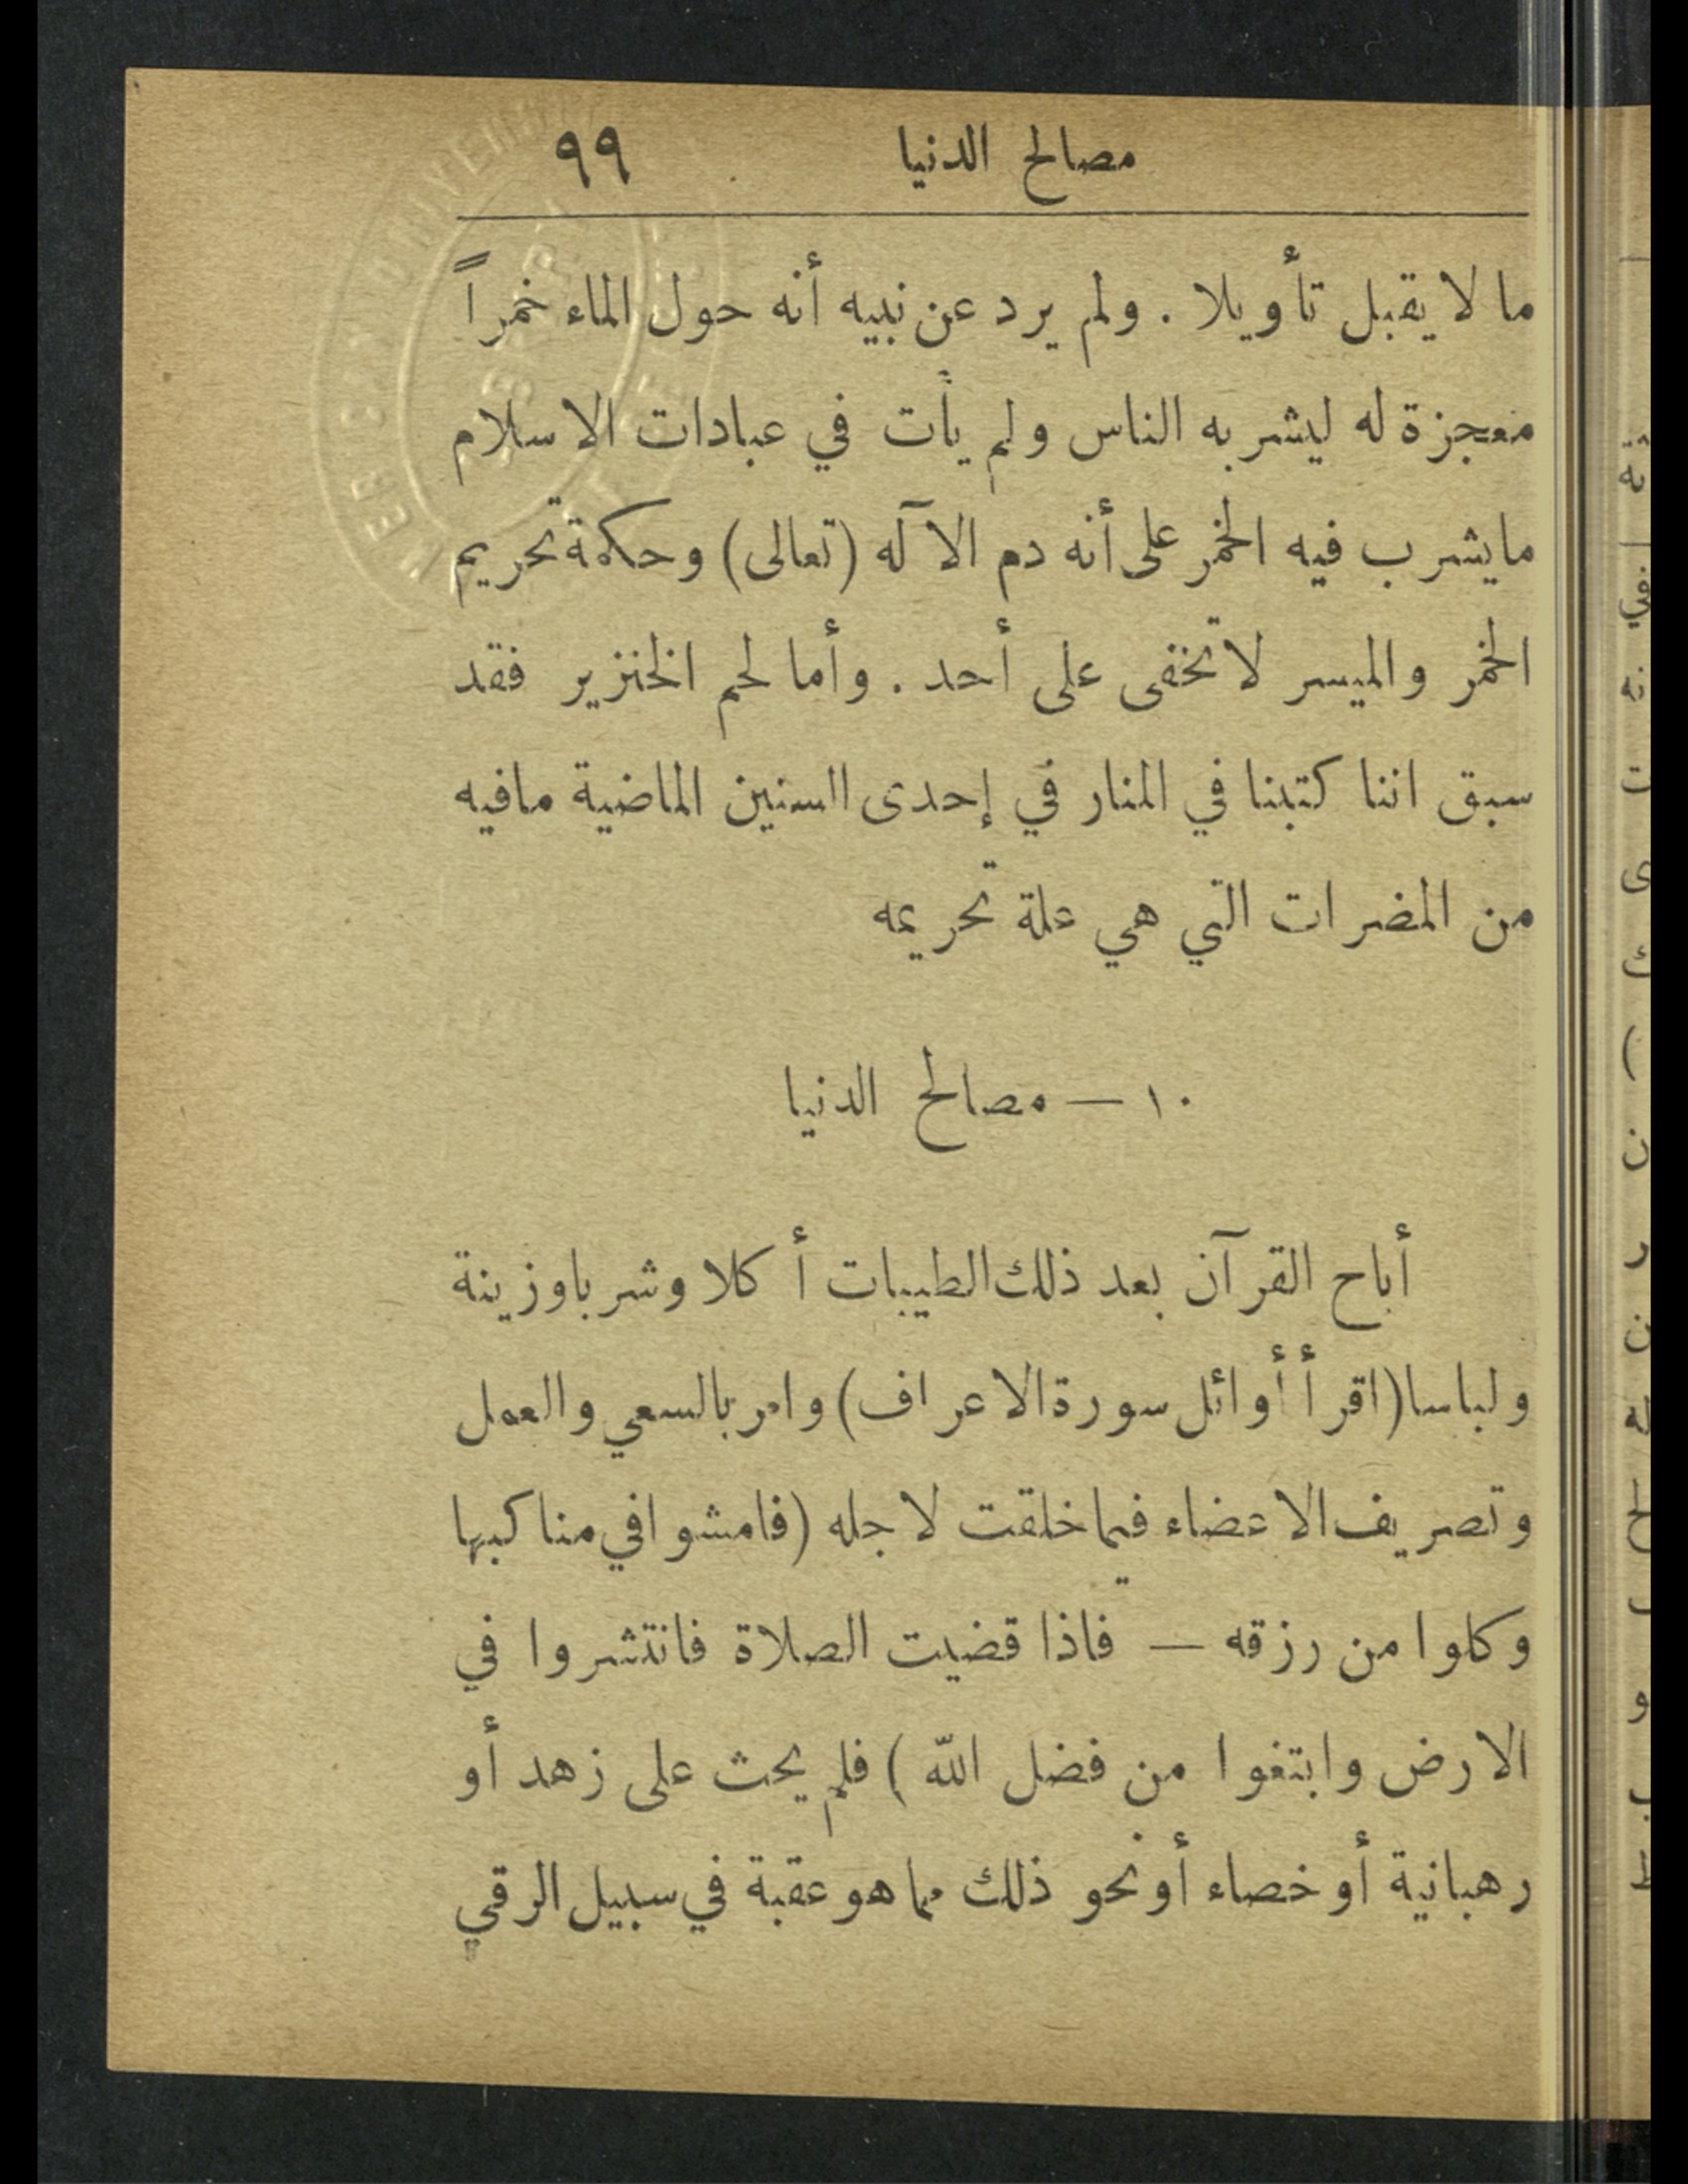 مصالح الدنيا ٩٩
ما لا يقبل تأويلا . ولم يرد عن نبيه أنه حول الماء خمراً
معجزة له ليشربه الناس ولم يأت في عبادات الاسلام
ما يشرب فيه الخمر على أنه دم الآله (تعالى) وحكمة تحريم
الخمر والميسر لا تخفى على أحد . وأما لحم الخنزير فقد
سبق اننا كتبنا في المنار في إحدى السنين الماضية مافيه
من المضرات التي هي علة تحريمه
١٠ — مصالح الدنيا
أباح القرآن بعد ذلك الطيبات أكلا وشربا وزينة
ولباسا (اقرأ أوائل سورة الاعراف) وامر بالسعي والعمل
وتصريف الاعضاء فيما خلقت لاجله (فامشوا في مناكبها
وكلوا من رزقه — فاذا قضيت الصلاة فانتشروا في
الارض وابتغوا من فضل الله ) فلم يحث على زهد أو
رهبانية أو خصاء أو نحو ذلك مما هو عقبة في سبيل الرقي